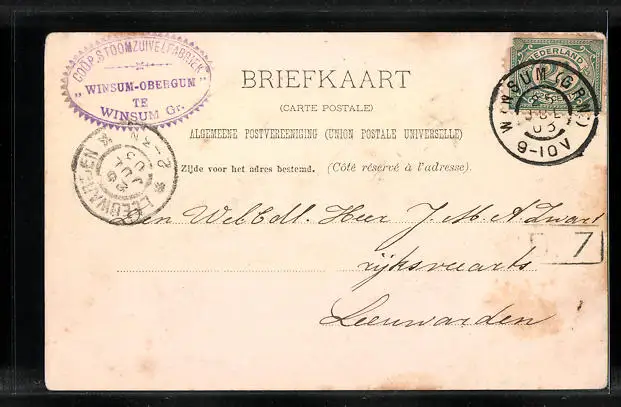 COÖP. STOOMZUIVELFABRIEK
„WINSUM-OBERGUM"
TE
WINSUM Gr.
NEDERLAND
WINSUM (GRN)
JUL
03
8-10V
BRIEFKAART
(CARTE POSTALE)
ALGEMEENE POSTVEREENIGING (UNION POSTALE UNIVERSELLE)
Zijde voor het adres bestemd. (Côté réservé à l'adresse).
LEEUWARDEN
JUL
03
Den WelEdl. Heer J. M. A. Zwart
7
rijksveearts
Leeuwarden